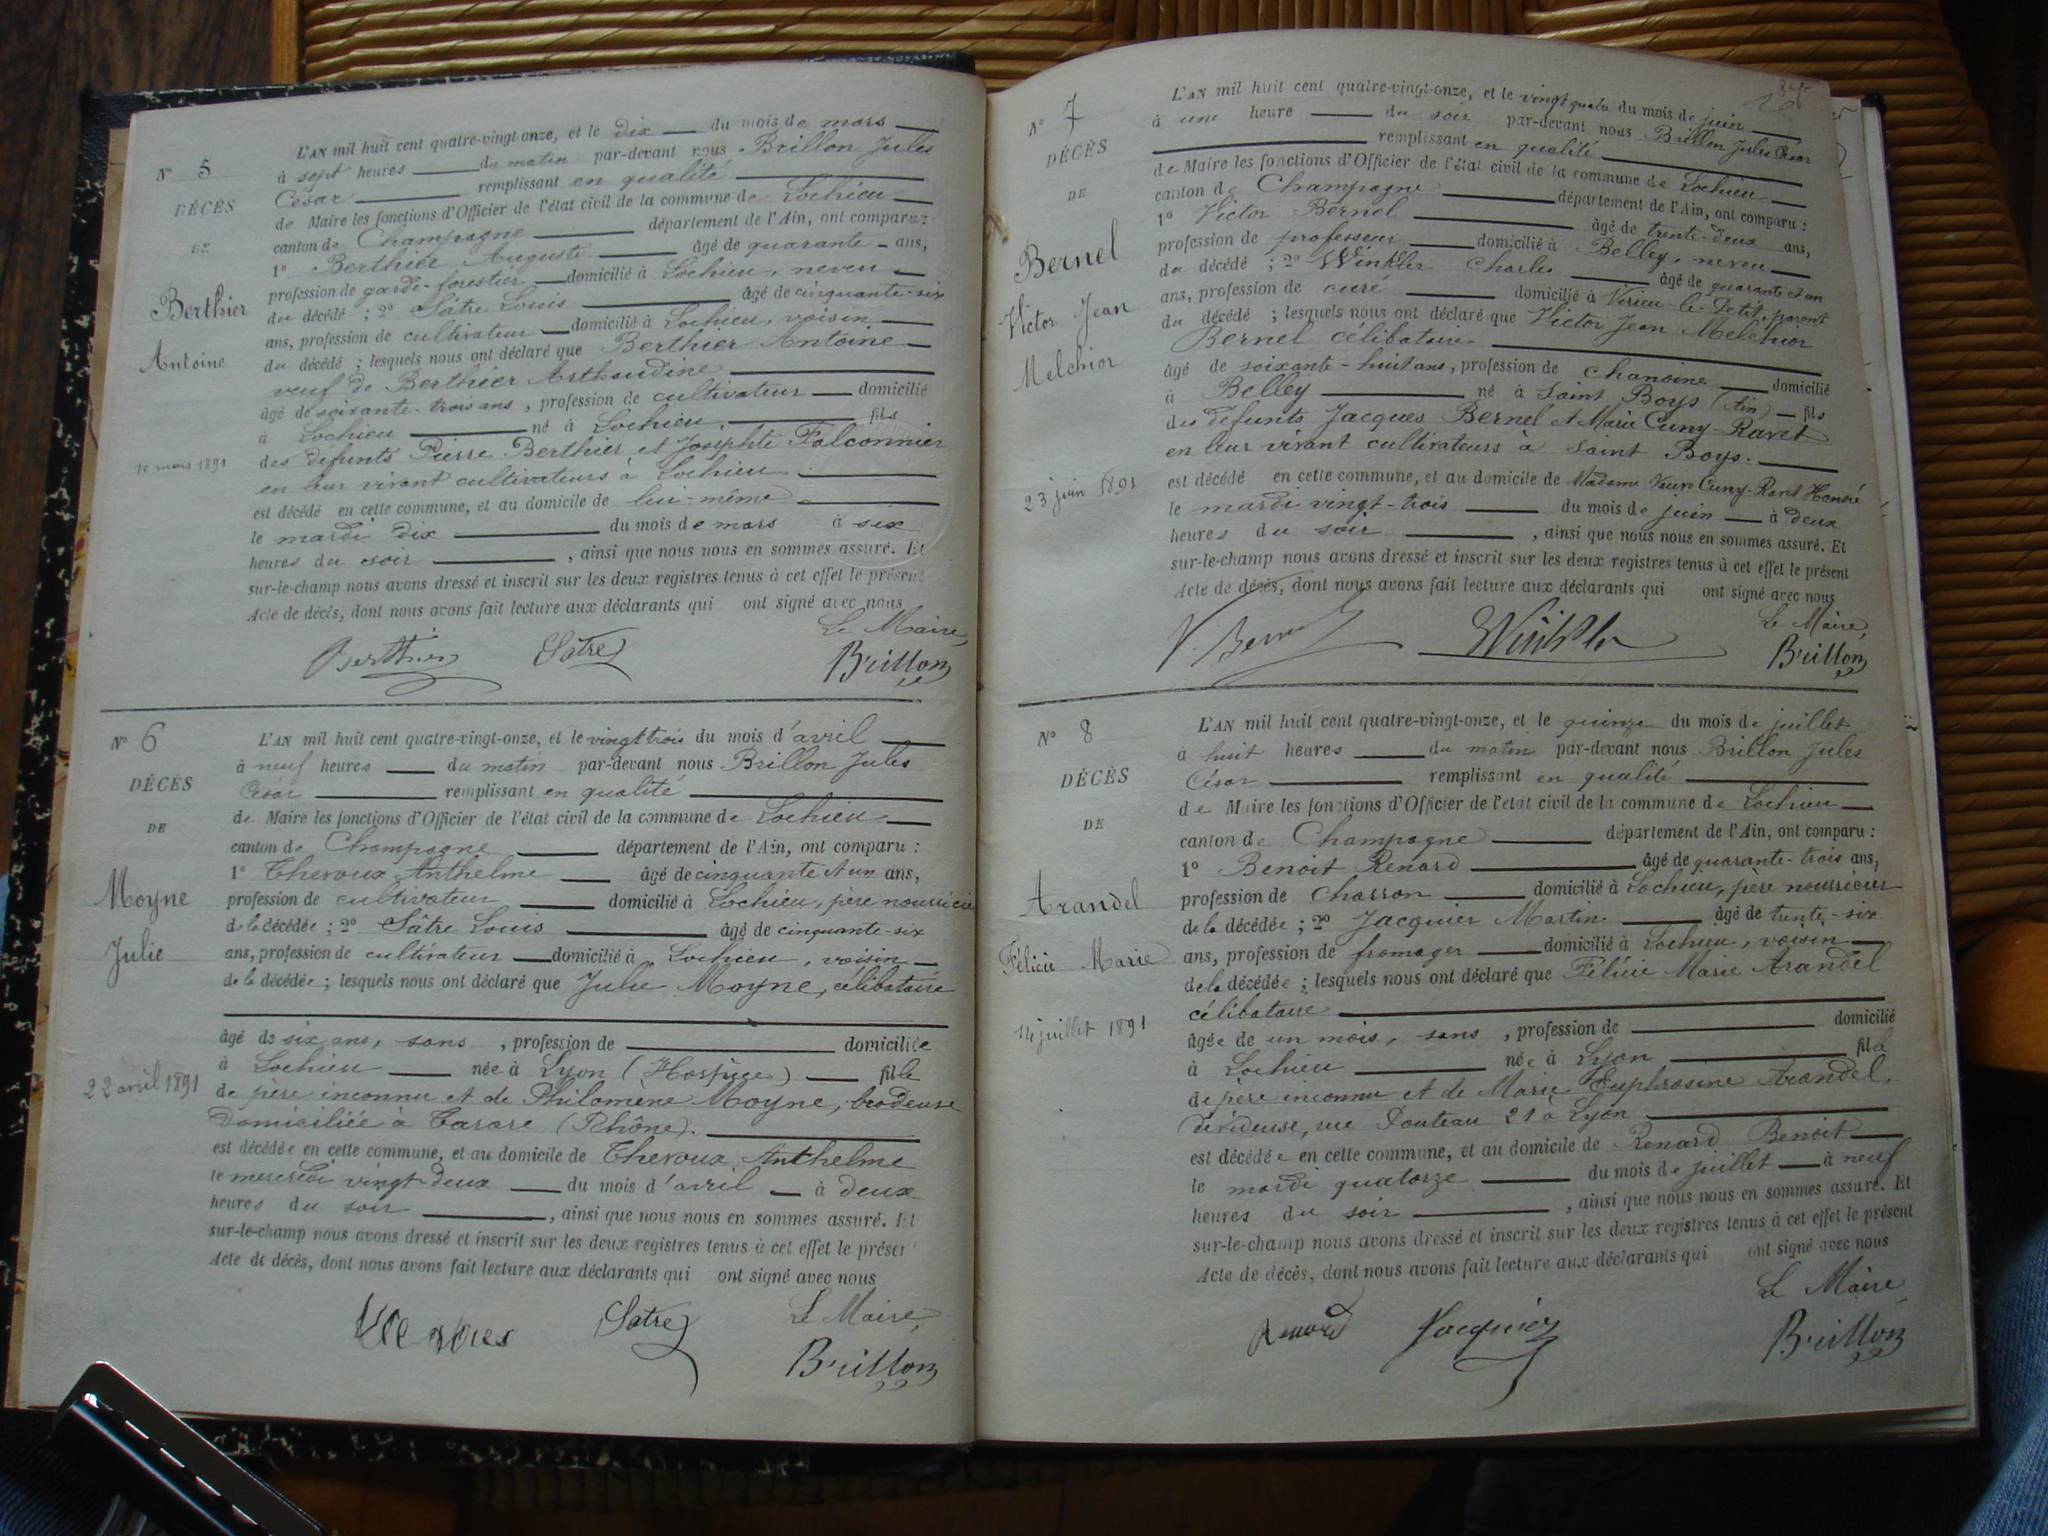 N° 5
DÉCÈS
DE
Berthier
Antoine
10 mars 1891
L'AN mil huit cent quatre-vingt-onze, et le dix du mois de mars
à sept heures du matin par-devant nous Brillon Jules
César remplissant en qualité
de Maire les fonctions d'Officier de l'état civil de la commune de Lochieu
canton de Champagne département de l'Ain, ont comparu :
1° Berthier Auguste âgé de quarante ans,
profession de garde-forestier domicilié à Lochieu, neveu
du décédé ; 2° Sâtre Louis âgé de cinquante-six
ans, profession de cultivateur domicilié à Lochieu, voisin
du décédé ; lesquels nous ont déclaré que Berthier Antoine
veuf de Berthier
âgé de soixante-trois ans, profession de cultivateur domicilié
à Lochieu né à Lochieu, fils
des défunts Pierre Berthier et Josephte Falconnier
en leur vivant cultivateurs à Lochieu
est décédé en cette commune, et au domicile de lui-même
le mardi dix du mois de mars à six
heures du soir , ainsi que nous nous en sommes assuré. Et
sur-le-champ nous avons dressé et inscrit sur les deux registres tenus à cet effet le présent
Acte de décès, dont nous avons fait lecture aux déclarants qui ont signé avec nous
Le Maire,
Berthier Satre Brillon
N° 6
DÉCÈS
DE
Moyne
Julie
22 avril 1891
L'AN mil huit cent quatre-vingt-onze, et le vingt trois du mois d'avril
à neuf heures du matin par-devant nous Brillon Jules
César remplissant en qualité
de Maire les fonctions d'Officier de l'état civil de la commune de Lochieu
canton de Champagne département de l'Ain, ont comparu :
1° Thevoux Anthelme âgé de cinquante et un ans,
profession de cultivateur domicilié à Lochieu, père nourricier
de la décédée ; 2° Sâtre Louis âgé de cinquante-six
ans, profession de cultivateur domicilié à Lochieu, voisin
de la décédée ; lesquels nous ont déclaré que Julie Moyne, célibataire
âgé de six ans, sans , profession de domiciliée
à Lochieu née à Lyon (Hospice) fille
de père inconnu et de Philomène Moyne, brodeuse
domiciliée à Tarare (Rhône).
est décédée en cette commune, et au domicile de Thevoux Anthelme
le mercredi vingt-deux du mois d'avril à deux
heures du soir , ainsi que nous nous en sommes assuré. Et
sur-le-champ nous avons dressé et inscrit sur les deux registres tenus à cet effet le présent
Acte de décès, dont nous avons fait lecture aux déclarants qui ont signé avec nous
Le Maire,
Satre Brillon
N° 7
DÉCÈS
DE
Bernel
Victor Jean
Melchior
23 juin 1891
L'AN mil huit cent quatre-vingt-onze, et le vingt quatre du mois de juin
à une heure du soir par-devant nous Brillon Jules César
remplissant en qualité
de Maire les fonctions d'Officier de l'état civil de la commune de Lochieu
canton de Champagne département de l'Ain, ont comparu :
1° Victor Bernel âgé de trente-deux ans,
profession de professeur domicilié à Belley, neveu
du décédé ; 2° Winkler Charles âgé de quarante et un
ans, profession de curé domicilié à Virieu-le-Petit, parent
du décédé ; lesquels nous ont déclaré que Victor Jean Melchior
Bernel célibataire
âgé de soixante-huit ans, profession de chanoine domicilié
à Belley né à Saint Boys (Ain) fils
des défunts Jacques Bernel et Marie Cuny-Ravet
en leur vivant cultivateurs à Saint Boys.
est décédé en cette commune, et au domicile de Madame Veuve Cuny-Ravet Honoré
le mardi vingt-trois du mois de juin à deux
heures du soir , ainsi que nous nous en sommes assuré. Et
sur-le-champ nous avons dressé et inscrit sur les deux registres tenus à cet effet le présent
Acte de décès, dont nous avons fait lecture aux déclarants qui ont signé avec nous
Le Maire,
V. Bernel Winkler Brillon
N° 8
DÉCÈS
DE
Arandel
Félicie Marie
14 juillet 1891
L'AN mil huit cent quatre-vingt-onze, et le quinze du mois de juillet
à huit heures du matin par-devant nous Brillon Jules
César remplissant en qualité
de Maire les fonctions d'Officier de l'état civil de la commune de Lochieu
canton de Champagne département de l'Ain, ont comparu :
1° Benoit Renard âgé de quarante-trois ans,
profession de charron domicilié à Lochieu, père nourricier
de la décédée ; 2° Jacquier Martin âgé de trente-six
ans, profession de fromager domicilié à Lochieu, voisin
de la décédée ; lesquels nous ont déclaré que Félicie Marie Arandel
célibataire
âgée de un mois, sans , profession de domicilié
à Lochieu née à Lyon fille
de père inconnu et de Marie Euphrosine Arandel,
dévideuse, rue Pouteau 21 à Lyon
est décédée en cette commune, et au domicile de Renard Benoit
le mardi quatorze du mois de juillet à neuf
heures du soir , ainsi que nous nous en sommes assuré. Et
sur-le-champ nous avons dressé et inscrit sur les deux registres tenus à cet effet le présent
Acte de décès, dont nous avons fait lecture aux déclarants qui ont signé avec nous
Le Maire,
Renard Jacquier Brillon